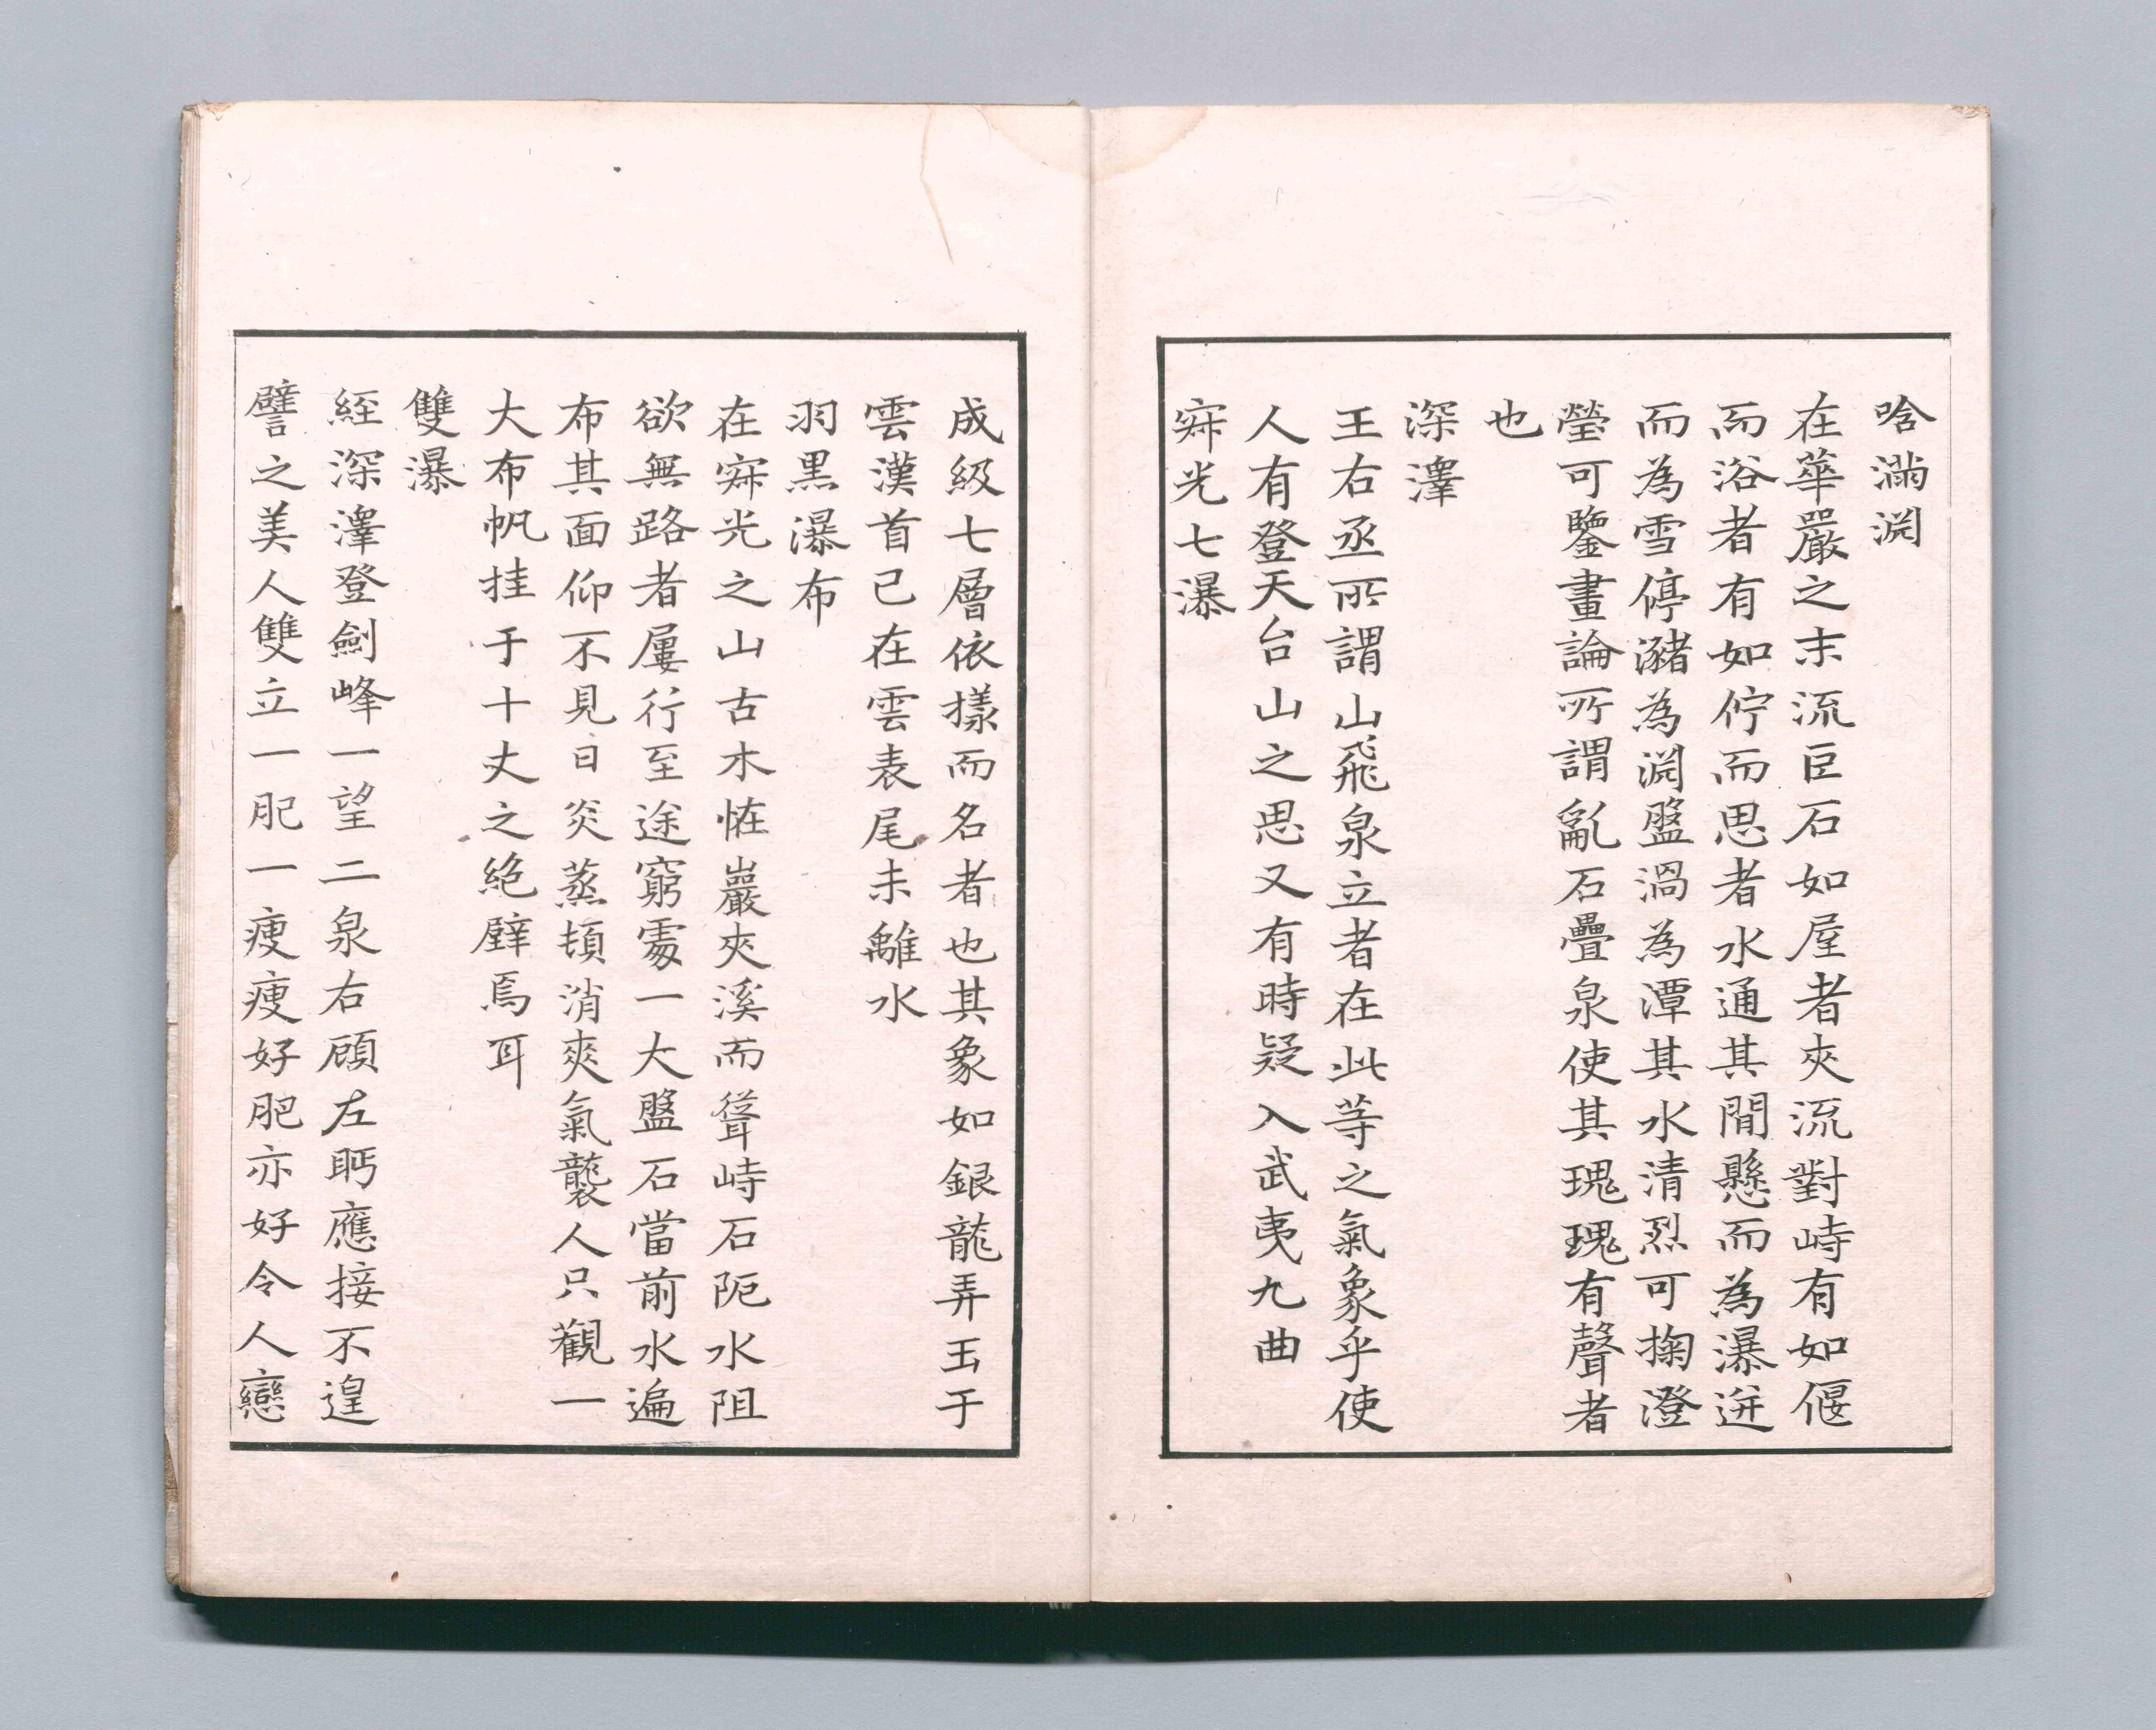 唅滿淵
在華嚴之末流巨石如屋者夾流對峙有如偃
而浴者有如佇而思者水通其間懸而為瀑迸
而為雪停瀦為淵盤渦為潭其水清烈可掬澄
瑩可鑒畫論所謂亂石疊泉使其瑰瑰有聲者
也
深澤
王右丞所謂山飛泉立者在此等之氣象乎使
人有登天台山之思又有時疑入武夷九曲
寂光七瀑
成級七層依樣而名者也其象如銀龍弄玉于
雲漢首已在雲表尾未離水
羽黒瀑布
在寂光之山古木恠巖夾溪而聳峙石阨水阻
欲無路者屢行至途窮處一大盤石當前水遍
布其面仰不見日炎蒸頓消爽氣襲人只觀一
大布帆挂于十丈之絕壁焉耳
雙瀑
經深澤登劍峰一望二泉右顧左眄應接不遑
譬之美人雙立一肥一瘦瘦好肥亦好令人戀